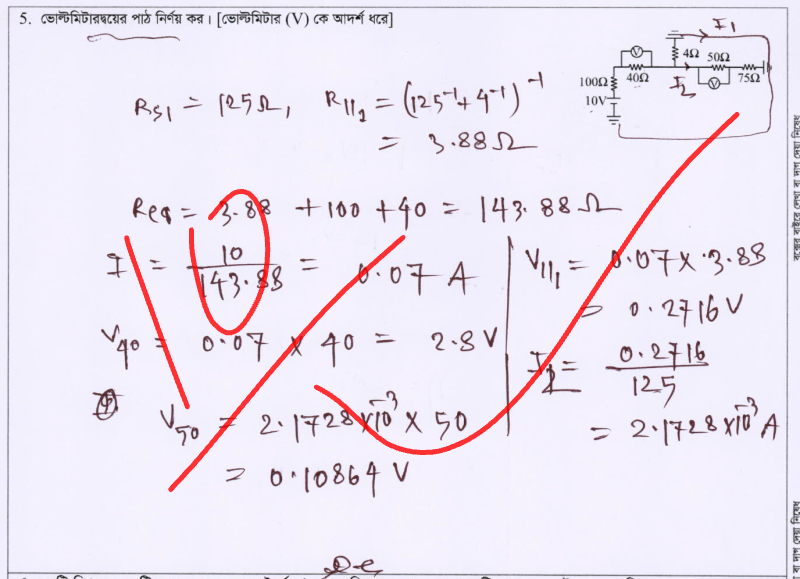 5. ভোল্টমিটারদ্বয়ের পাঠ নির্ণয় কর। [ভোল্টমিটার (V) কে আদর্শ ধরে]
I₁
V 4Ω 50Ω
100Ω 40Ω I₂ V 75Ω
10V
Rs₁ = 125Ω, R||₁ = (125⁻¹+4⁻¹)⁻¹
= 3.88Ω
Req = 3.88 + 100 + 40 = 143.88Ω
I = 10/143.88 = 0.07 A
V₄₀ = 0.07 × 40 = 2.8 V
V₅₀ = 2.1728×10⁻³ × 50
= 0.10864 V
V||₁ = 0.07 × 3.88
= 0.2716 V
I₂ = 0.2716/125
= 2.1728×10⁻³ A
বক্সের বাইরে লেখা বা দাগ দেয়া নিষেধ
বা দাগ দেয়া নিষেধ